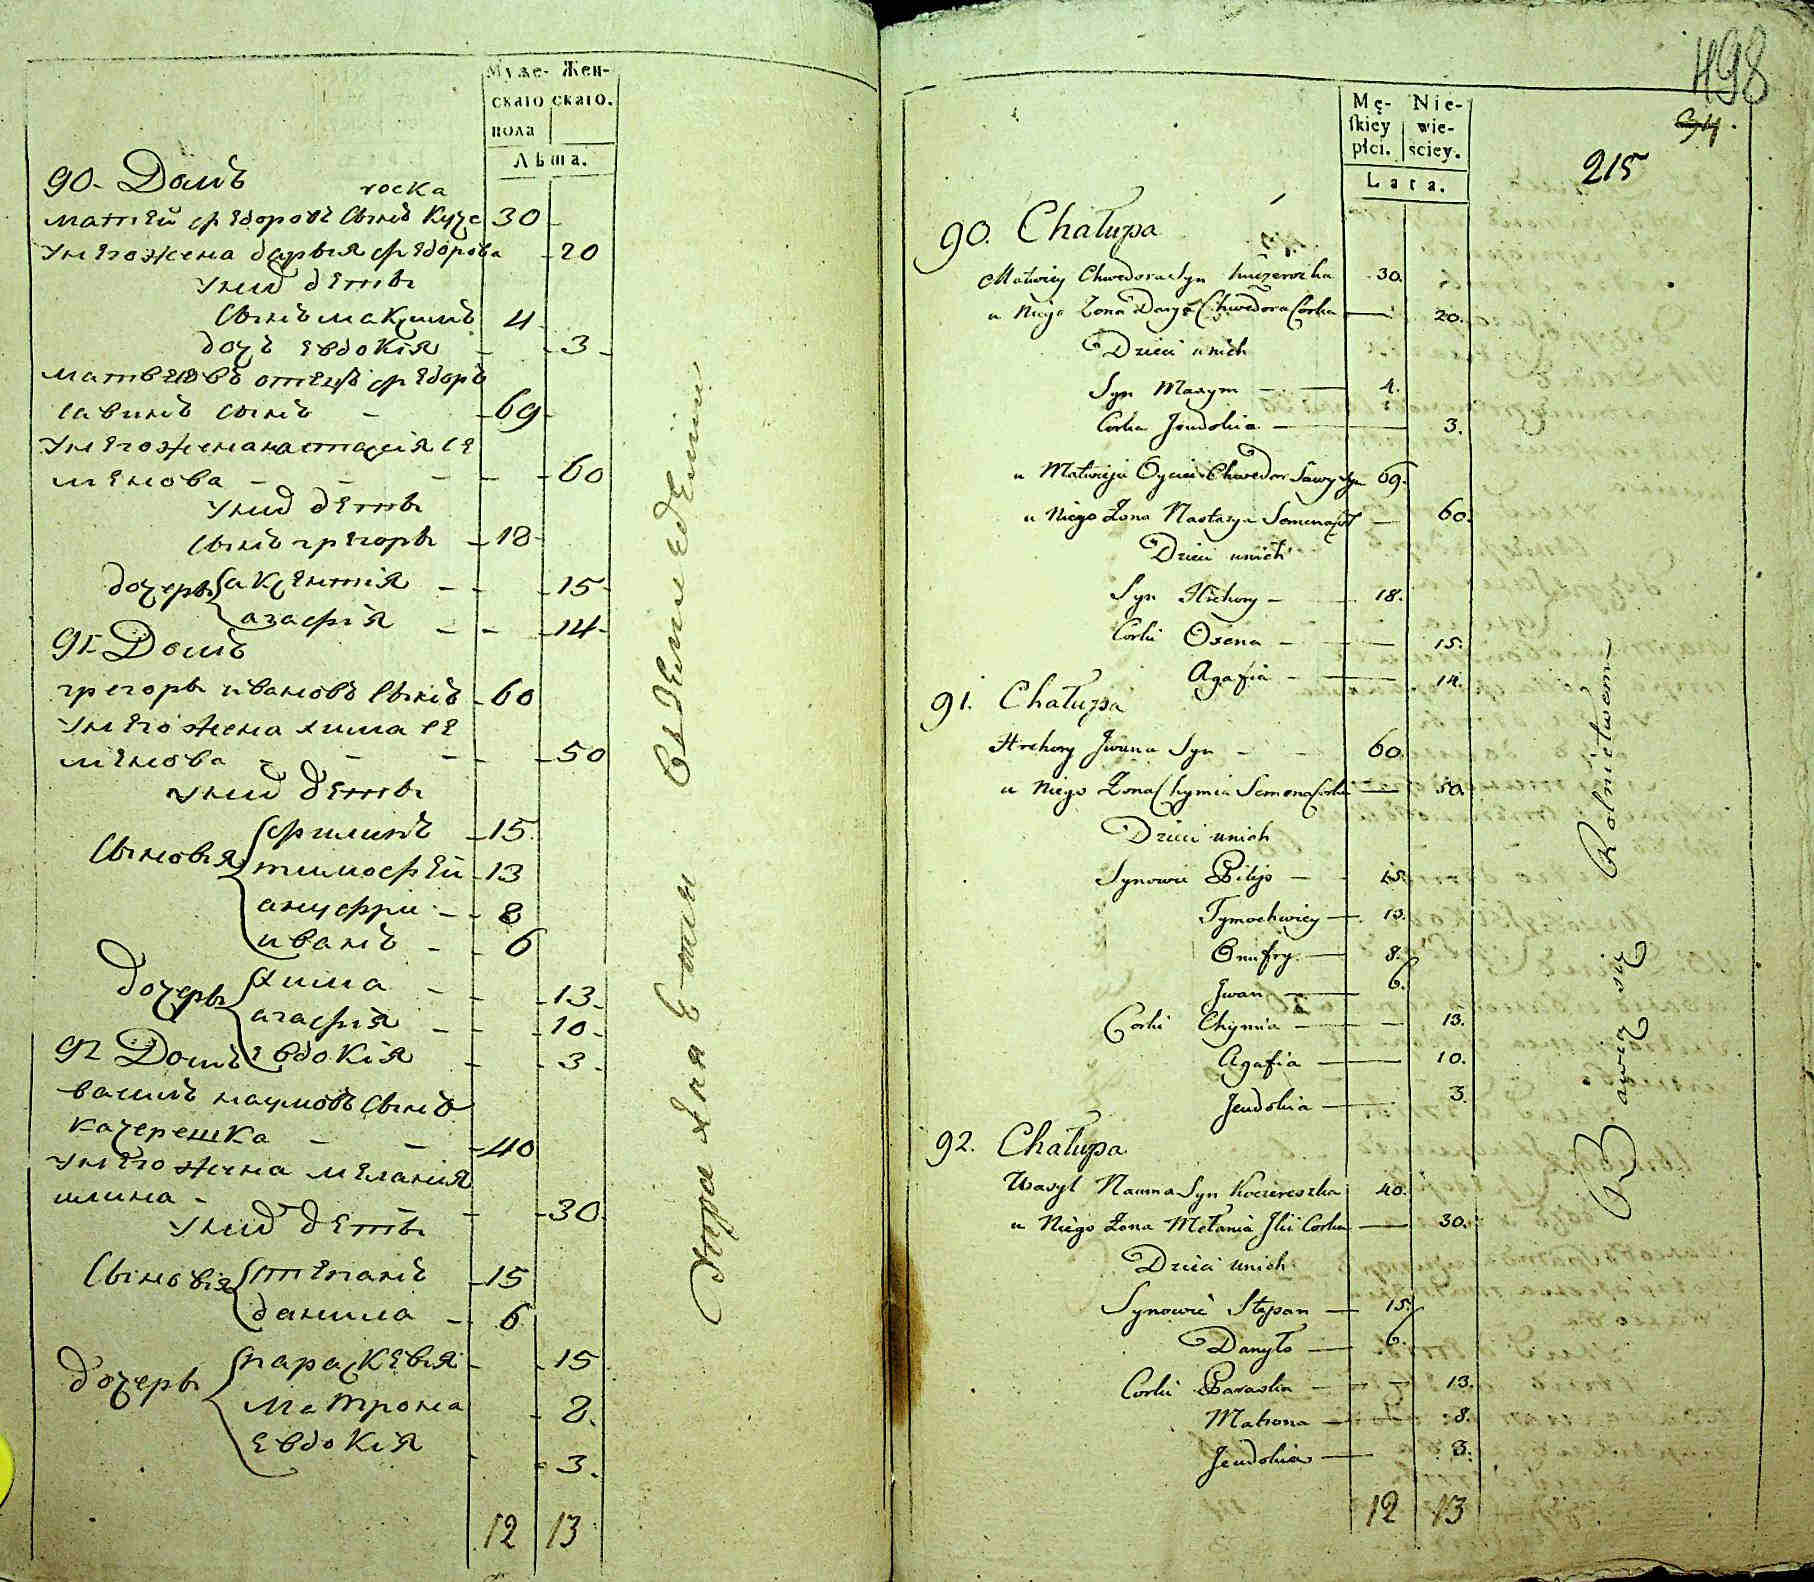 Муже- Жен-
скаго скаго.
пола
Лѣта.
90. Домъ
матвей федоровъ сынъ куче
роска 30
унегожена дарья федорова 20
уних дети
сынъ максимъ 4
дочь евдокия 3
матвеевъ отецъ федоръ
савинъ сынъ 69
унегожена настасия се
менова 60
уних дети
сынъ григоры 18
дочеры аксентия 15
агафия 14
91 Домъ
григоры ивановъ сынъ 60
унего жена хима се
менова 50
уних дети
сыновья филипъ 15
тимофей 13
ануфри 8
иванъ 6
дочеры хима 13
агафия 10
евдокия 3
92 Домъ
василь наумовъ сынъ
качерешка 40
унего жена мелания
илина 30
уних дети
сыновья степанъ 15
данила 6
дочеры параскевия 15
матрона 8
евдокия 3
12 13
498
94
215
Mę- Nie-
skiey wie-
płci. ściey.
Lata.
90. Chałupa
Matwiey Chwedora Syn Kuczeroszka 30.
u Niego Zona Darya Chwedora Corka 20.
Dzieci unich
Syn Maxym 4.
Corka Jeudokia 3.
u Matwieja Oyciec Chwedor Sawy Syn 69.
u Niego Zona Nastazya Semena 60.
Dzieci unich
Syn Hrehory 18.
Corki Oxena 15.
Agafia 14.
91. Chałupa
Hrehory Jwana Syn 60.
u Niego Zona Chymia Semena Corka 50.
Dzieci unich
Synowie Pilip 15.
Tymochwiey 13.
Onufry 8.
Jwan 6.
Corki Chymia 13.
Agafia 10.
Jeudokia 3.
92. Chałupa
Wasyl Nauma Syn Koczereszka 40.
u Niego Zona Mełania Jlii Corka 30.
Dzieci unich
Synowie Stepan 15.
Danyło 6.
Corki Paraska 13.
Matrona 8.
Jeudokia 3.
12 13
Bawią się Rolnictwem